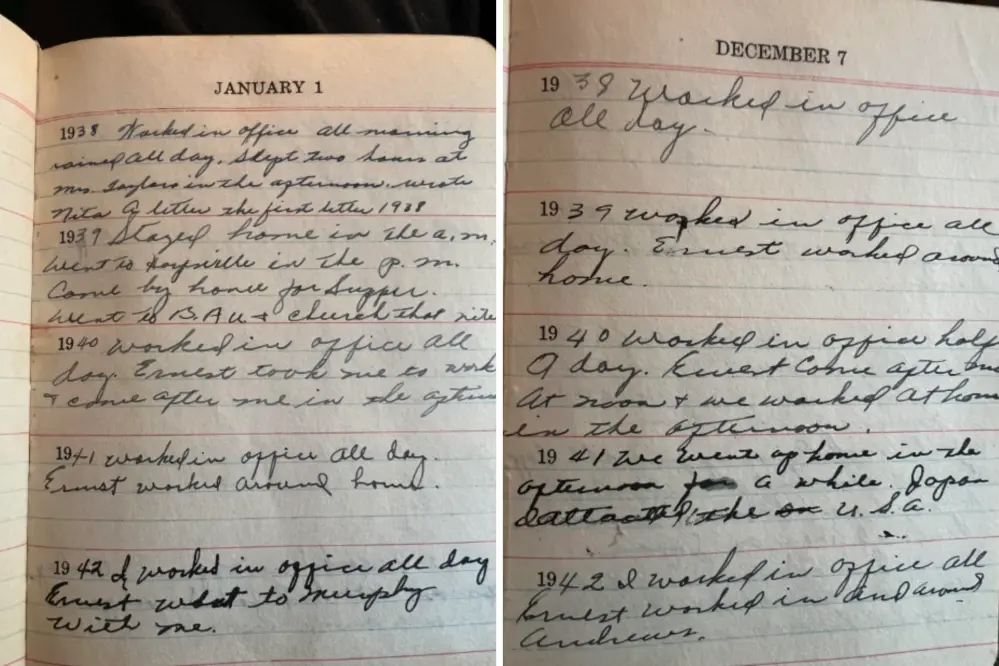 JANUARY 1
1938 Worked in office all morning
rained all day. Slept two hours at
Mrs. Taylors in the afternoon. wrote
Nita a letter the first letter 1938
1939 Stayed home in the a.m.
Went to Hayesville in the p.m.
Come by home for Supper.
Went to B.A.U. & church that nite
1940 worked in office all
day. Ernest took me to work
& come after me in the
1941 worked in office all day.
Ernest worked around home.
1942 I worked in office all day
Ernest went to Murphy
With me.
DECEMBER 7
1938 Worked in office
all day.
1939 worked in office all
day. Ernest worked around
home.
1940 worked in office half
a day. Ernest Come after me
at noon & we worked at home
in the afternoon.
1941 We went up home in the
afternoon for a while. Japan
attacted the U.S.A.
1942 I worked in office all
Ernest worked in and around
Andrews.